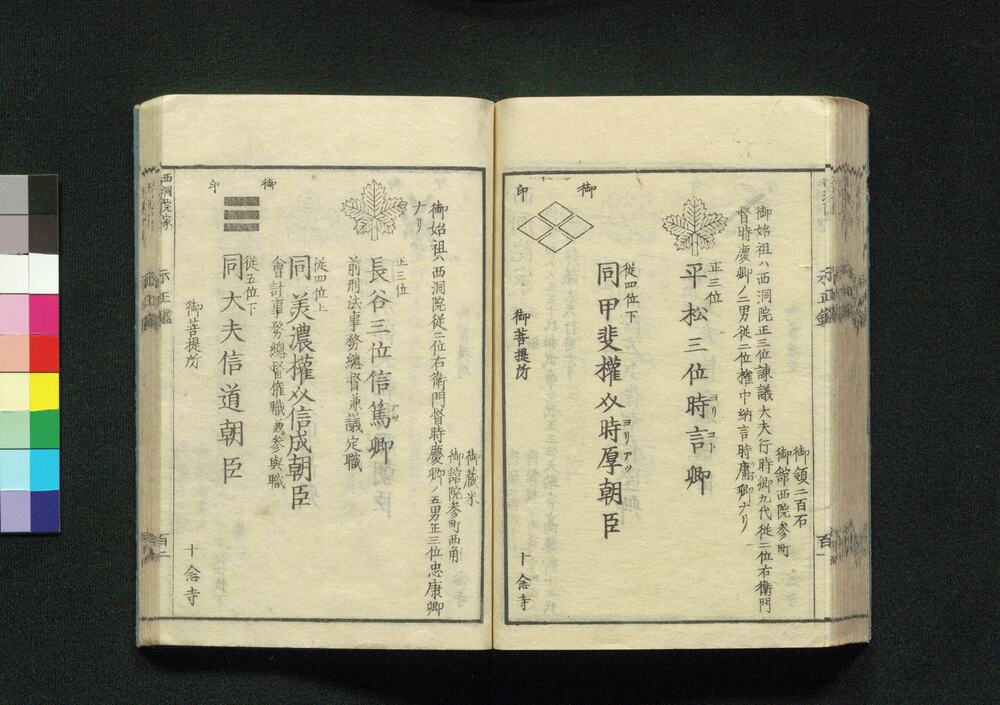 御領二百石
御館西院参町
御始祖ハ西洞院正三位諫議大夫行時卿九代従二位右衛門
督時慶卿ノ二男従二位権中納言時庸卿ナリ
正三位
平松三位時言卿
ヨリ コト
従四位下
同甲斐權介時厚朝臣
ヨリ アツ
御印
御菩提所
十念寺
示正鑑
百一
御蔵米
御館院参町西角
御始祖ハ西洞院従二位右衛門督時慶卿ノ五男正三位忠康卿
ナリ
正三位
長谷三位信篤卿
アツ
前刑法事務總督兼議定職
従四位上
同美濃權介信成朝臣
會計事務總督権職兼参與職
従五位下
同大夫信道朝臣
御印
御菩提所
十念寺
西洞院家
示正鑑
百二